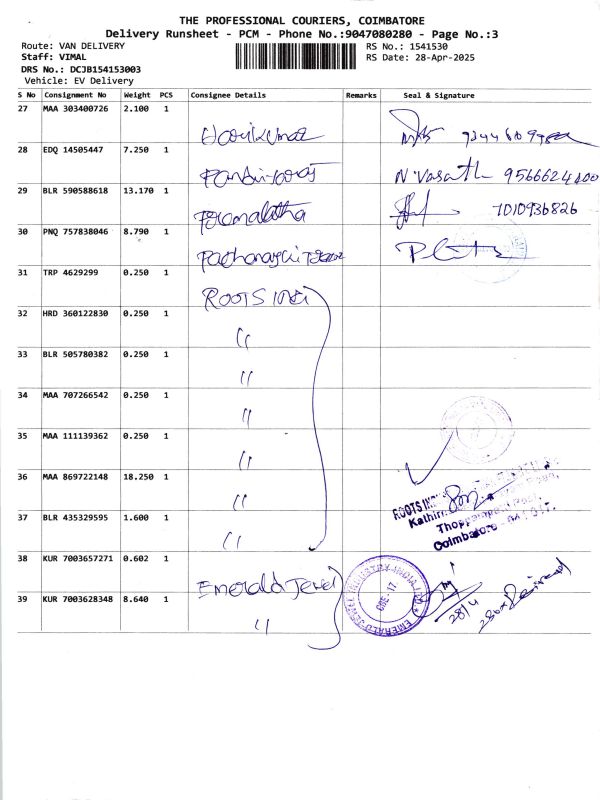 THE PROFESSIONAL COURIERS, COIMBATORE
Delivery Runsheet - PCM - Phone No.:9047080280 - Page No.:3
Route: VAN DELIVERY RS No.: 1541530
Staff: VIMAL RS Date: 28-Apr-2025
DRS No.: DCJB154153003
Vehicle: EV Delivery
S No Consignment No Weight PCS Consignee Details Remarks Seal & Signature
27 MAA 303400726 2.100 1
Harikumar
28 EDQ 14505447 7.250 1
N. Vasanth 9566624400
29 BLR 590588618 13.170 1
Premalatha 7010936826
30 PNQ 757838046 8.790 1
31 TRP 4629299 0.250 1
ROOTS
32 HRD 360122830 0.250 1
"
33 BLR 505780382 0.250 1
"
34 MAA 707266542 0.250 1
"
35 MAA 111139362 0.250 1
"
36 MAA 869722148 18.250 1
"
ROOTS
Thoppampatti Post,
Coimbatore
37 BLR 435329595 1.600 1
"
38 KUR 7003657271 0.602 1
Emerald Jewel
EMERALD JEWEL INDUSTRY INDIA
CBE-17
28/4
39 KUR 7003628348 8.640 1
"